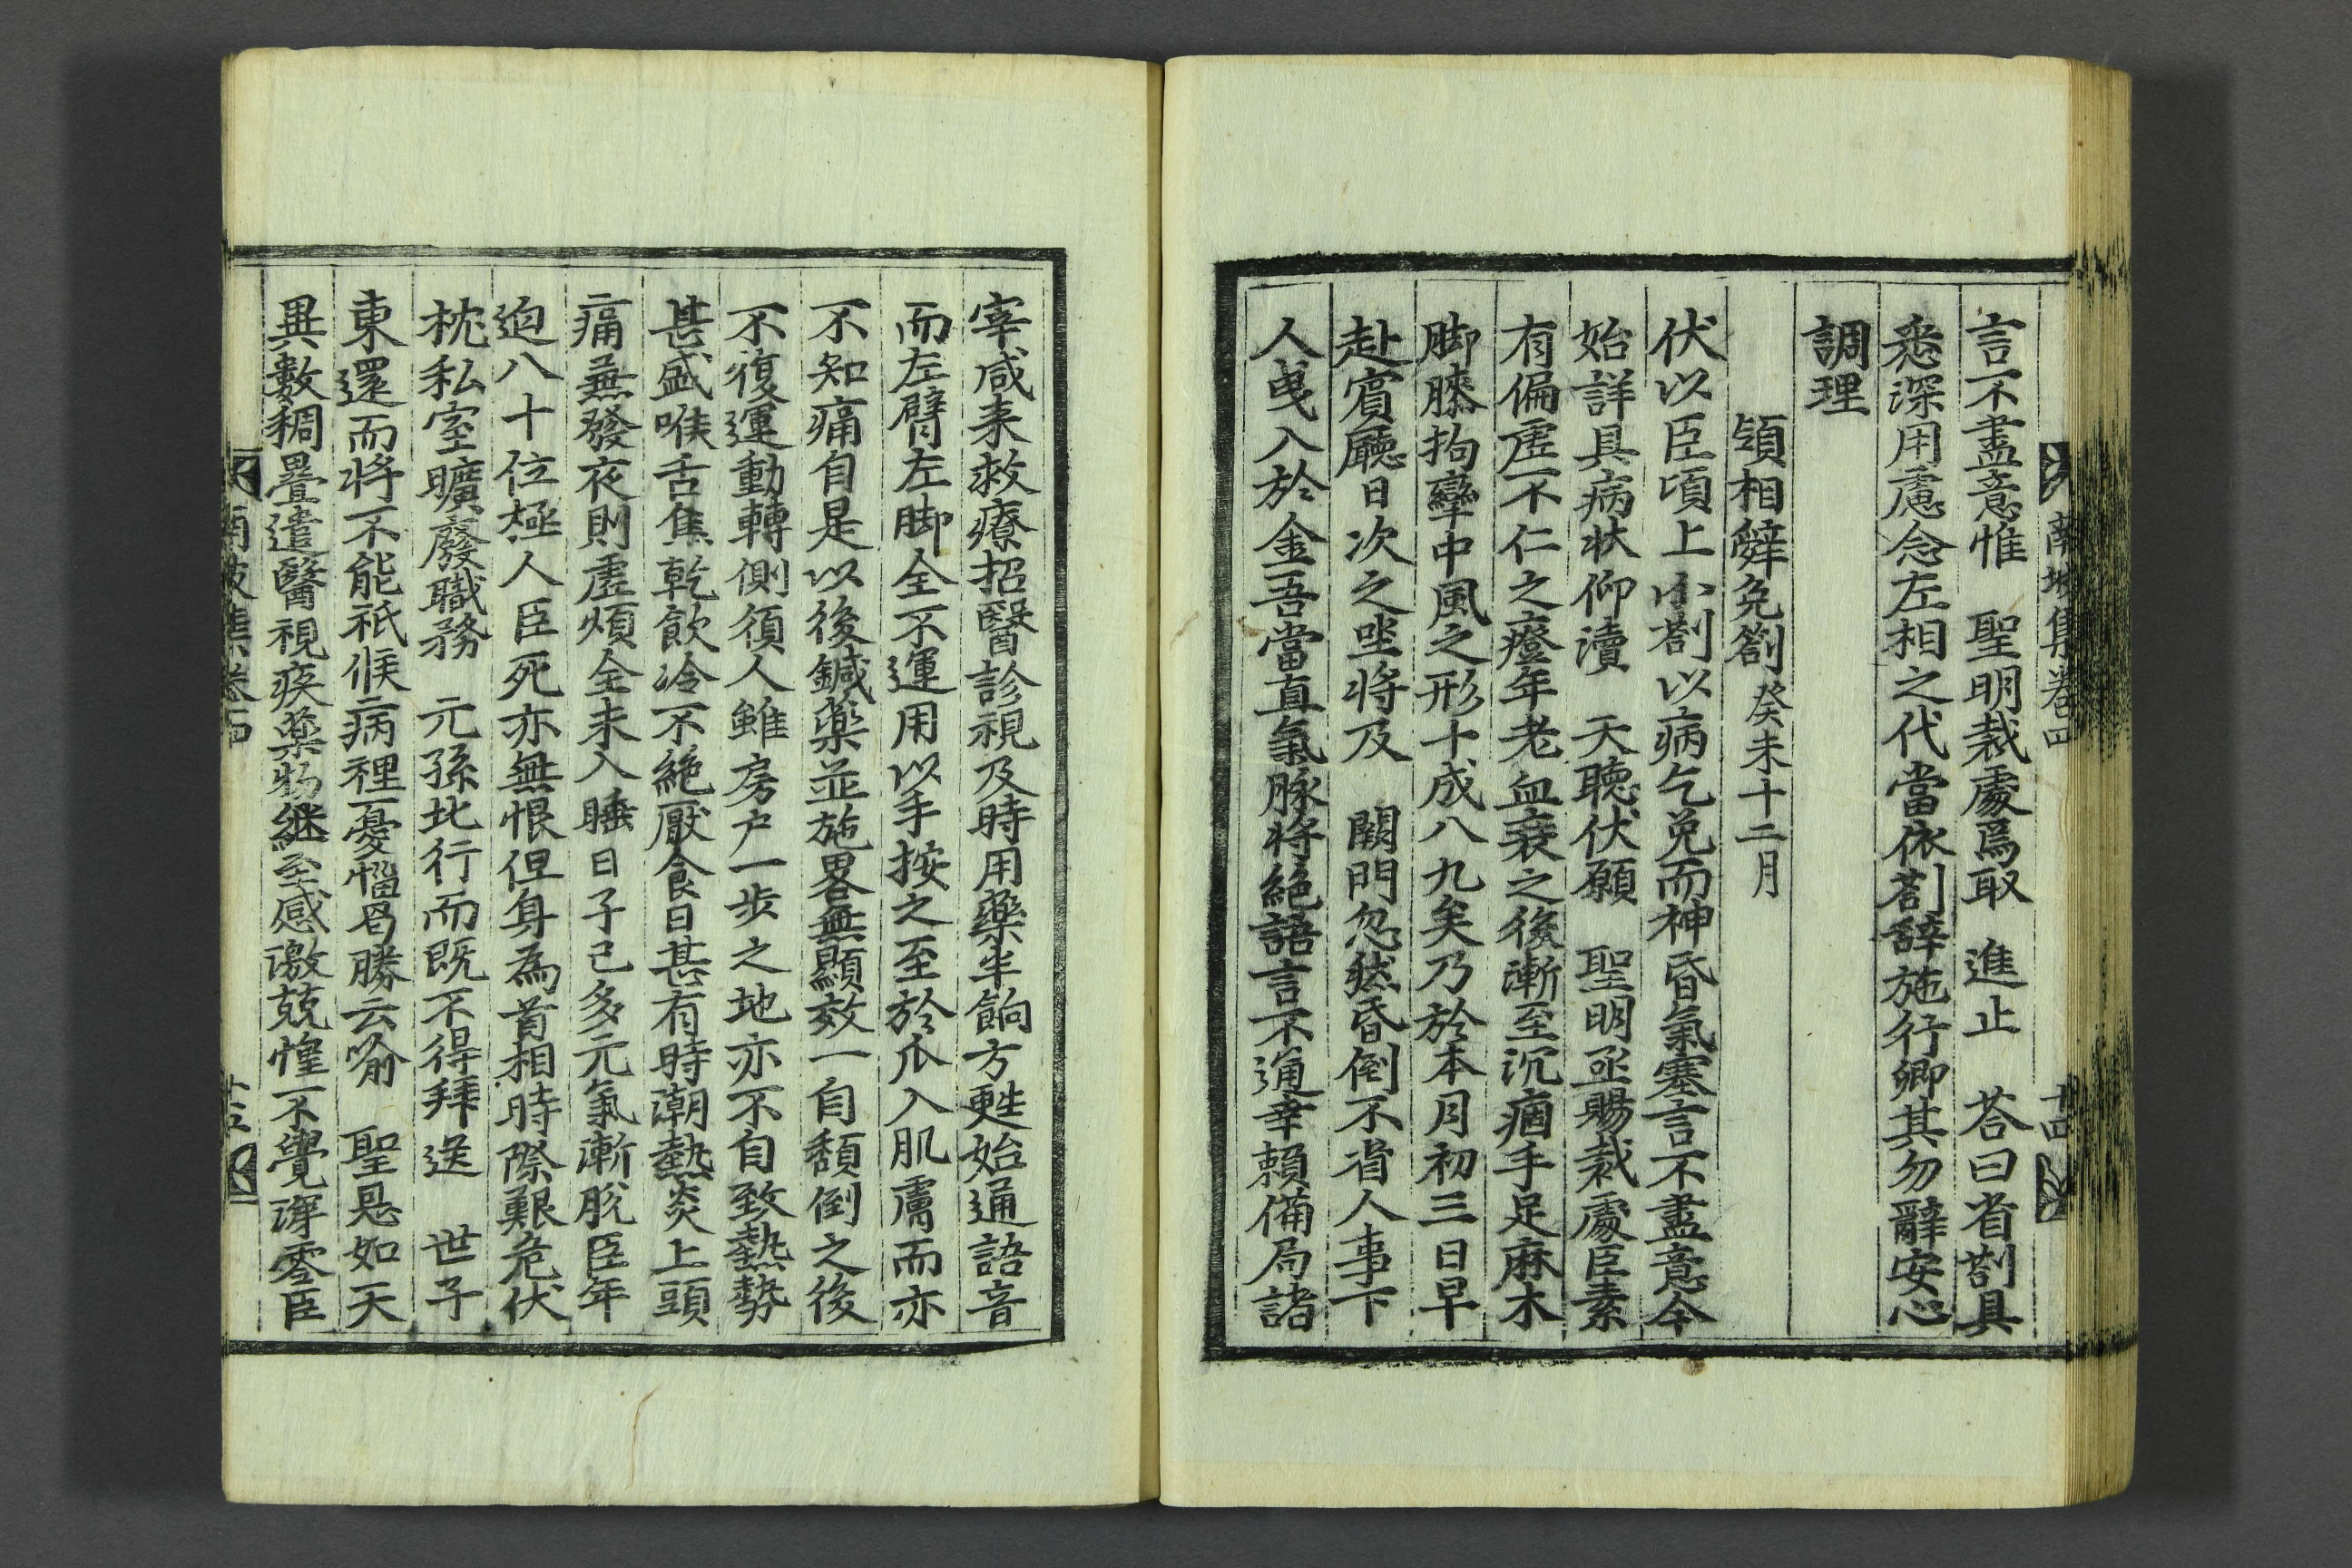 南坡集卷四 十四
言不盡意惟 聖明裁處焉取 進止 荅曰省劄具
悉深用慮念左相之代當依劄辭施行卿其勿辭安心
調理
領相辭免劄癸未十二月
伏以臣頃上小劄以病乞免而神昏氣塞言不盡意今
始詳具病狀仰瀆 天聽伏願 聖明亟賜裁處臣素
有偏虛不仁之證年老血衰之後漸至沉痼手足麻木
脚膝拘攣中風之形十成八九矣乃於本月初三日早
赴賓廳日次之坐將及 闕門忽然昏倒不省人事下
人曳入於金吾當直氣脉將絕語言不通幸賴備局諸
宰咸来救療招醫診視及時用藥半餉方甦始通語音
而左臂左脚全不運用以手按之至於爪入肌膚而亦
不知痛自是以後鍼藥並施畧無顯效一自頹倒之後
不復運動轉側須人雖房户一步之地亦不自致熱勢
甚盛喉舌焦乾飮冷不絶厭食日甚有時潮熱炎上頭
痛兼發夜則虛煩全未入睡日子已多元氣漸脫臣年
迫八十位極人臣死亦無恨但身為首相時際艱危伏
枕私室曠廢職務 元孫北行而旣不得拜送 世子
東還而將不能祗候病裡憂惱曷勝云喩 聖恩如天
異數稠疊遣醫視疾藥物継至感激兢惶不覺渾零臣
南坡集卷四